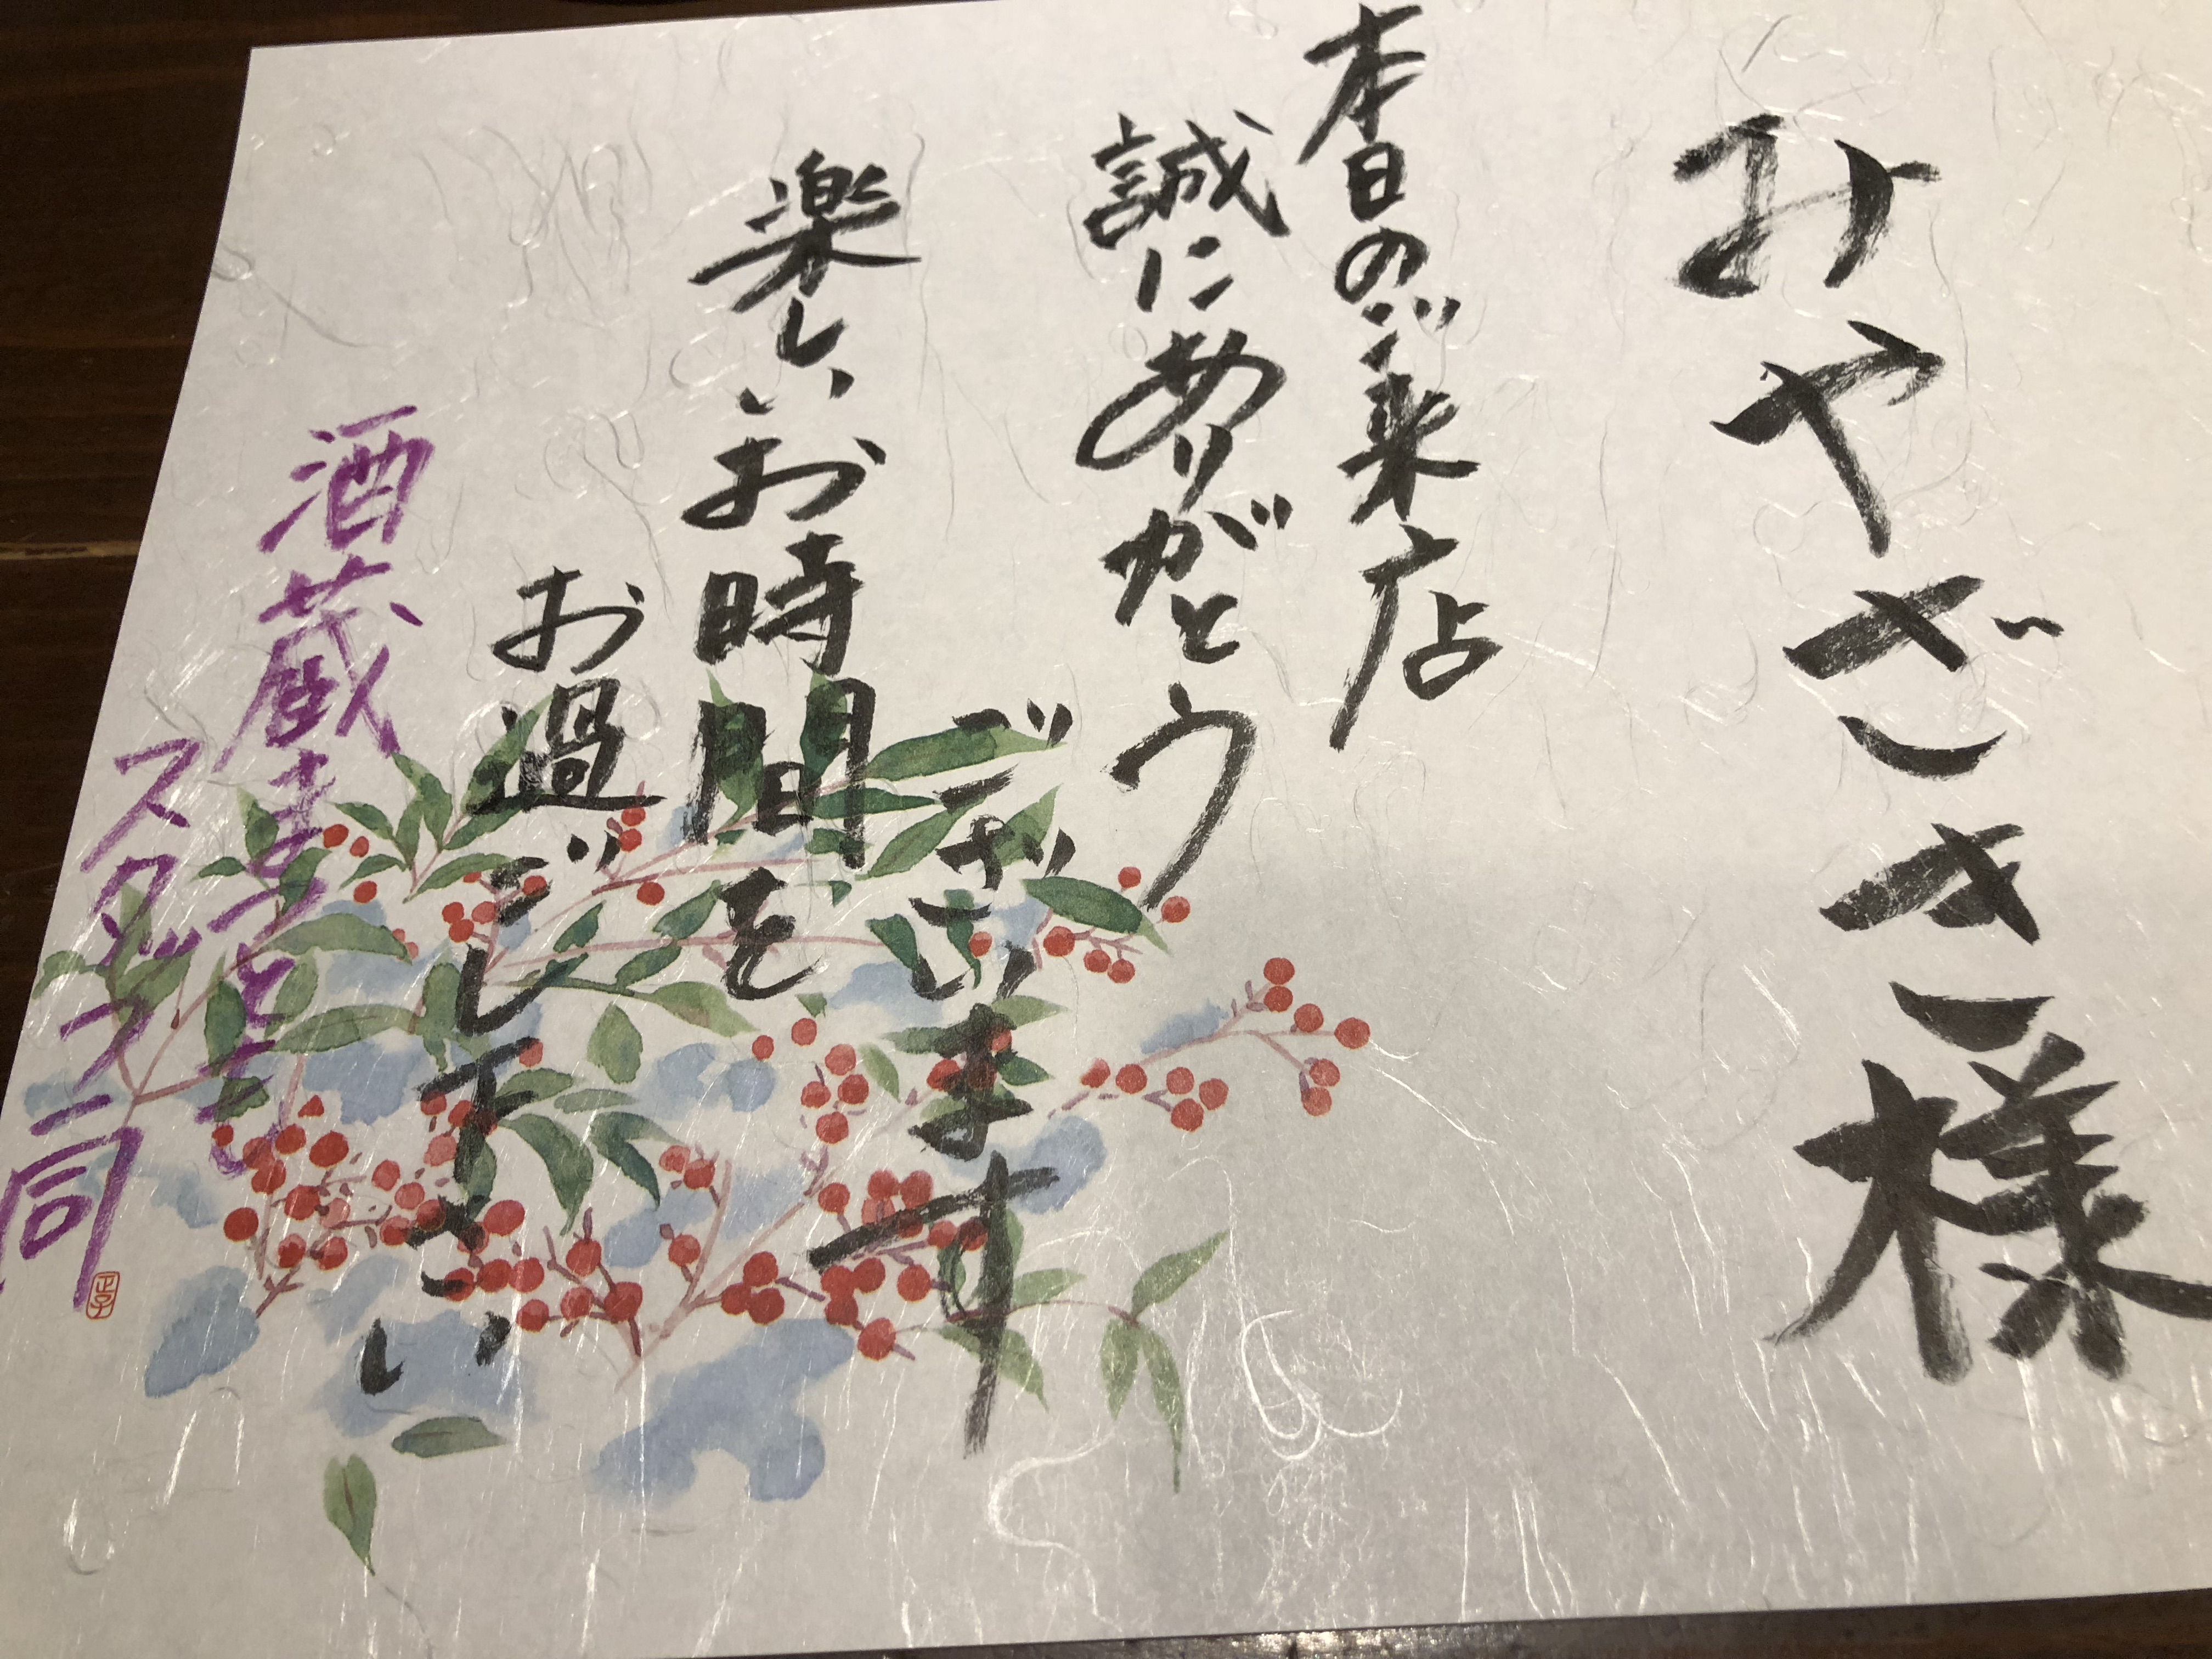 みやざき様
本日のご来店
誠にありがとう
ございます
楽しいお時間を
お過ごし下さい
酒蔵まつもと
スタッフ一同